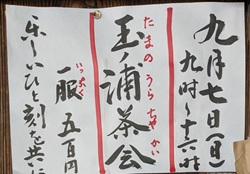 九月七日(日)
九時〜十六時
たまのうらちゃかい
玉ノ浦茶会
いっぷく
一服 五百円
楽しいひと刻を共に